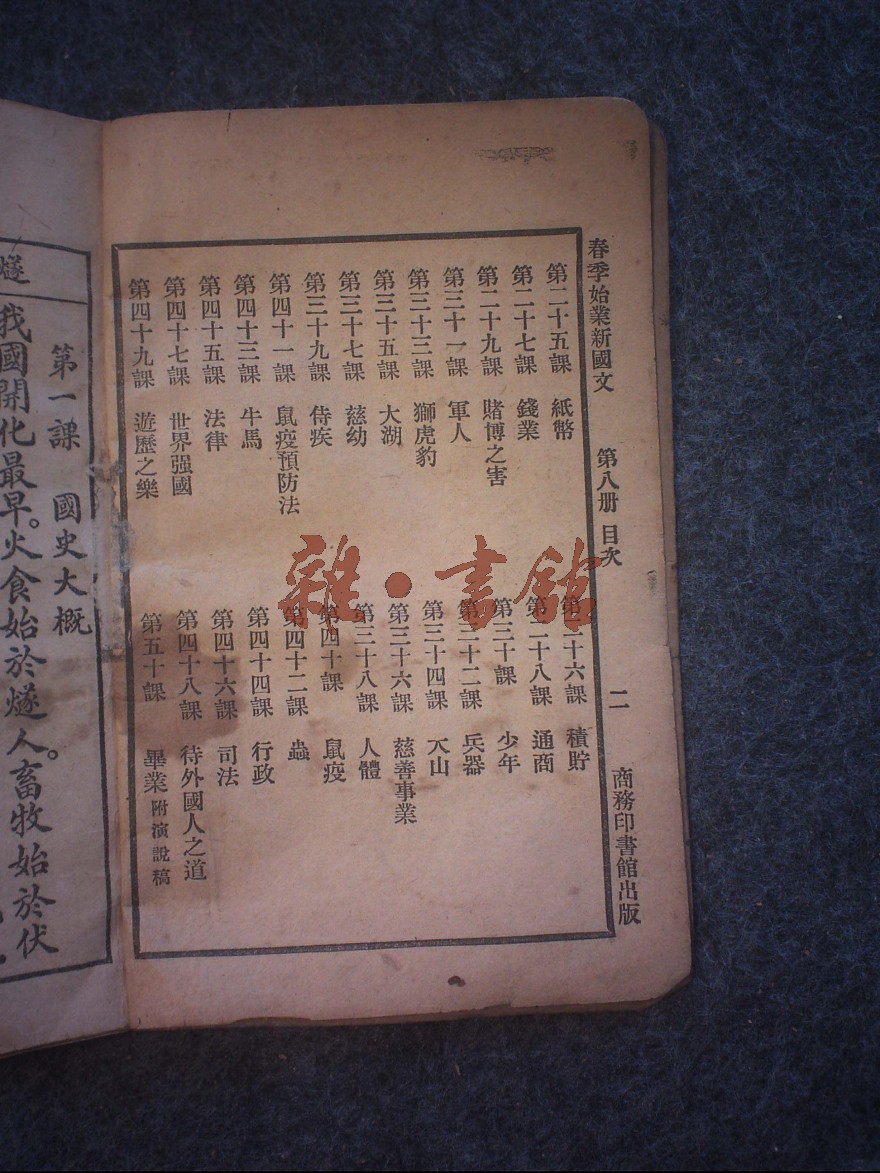 春季始業新國文 第八册 目次 二 商務印書館出版
第二十五課 紙幣
第二十六課 積貯
第二十七課 錢業
第二十八課 通商
第二十九課 賭博之害
第三十課 少年
第三十一課 軍人
第三十二課 兵器
第三十三課 獅虎豹
第三十四課 火山
第三十五課 大湖
第三十六課 慈善事業
第三十七課 慈幼
第三十八課 人體
第三十九課 侍疾
第四十課 鼠疫
第四十一課 鼠疫預防法
第四十二課 蟲
第四十三課 牛馬
第四十四課 行政
第四十五課 法律
第四十六課 司法
第四十七課 世界强國
第四十八課 待外國人之道
第四十九課 遊歷之樂
第五十課 畢業 附演說稿
第一課 國史大概
我國開化最早。火食始於燧人。畜牧始於伏
燧
雜·書館